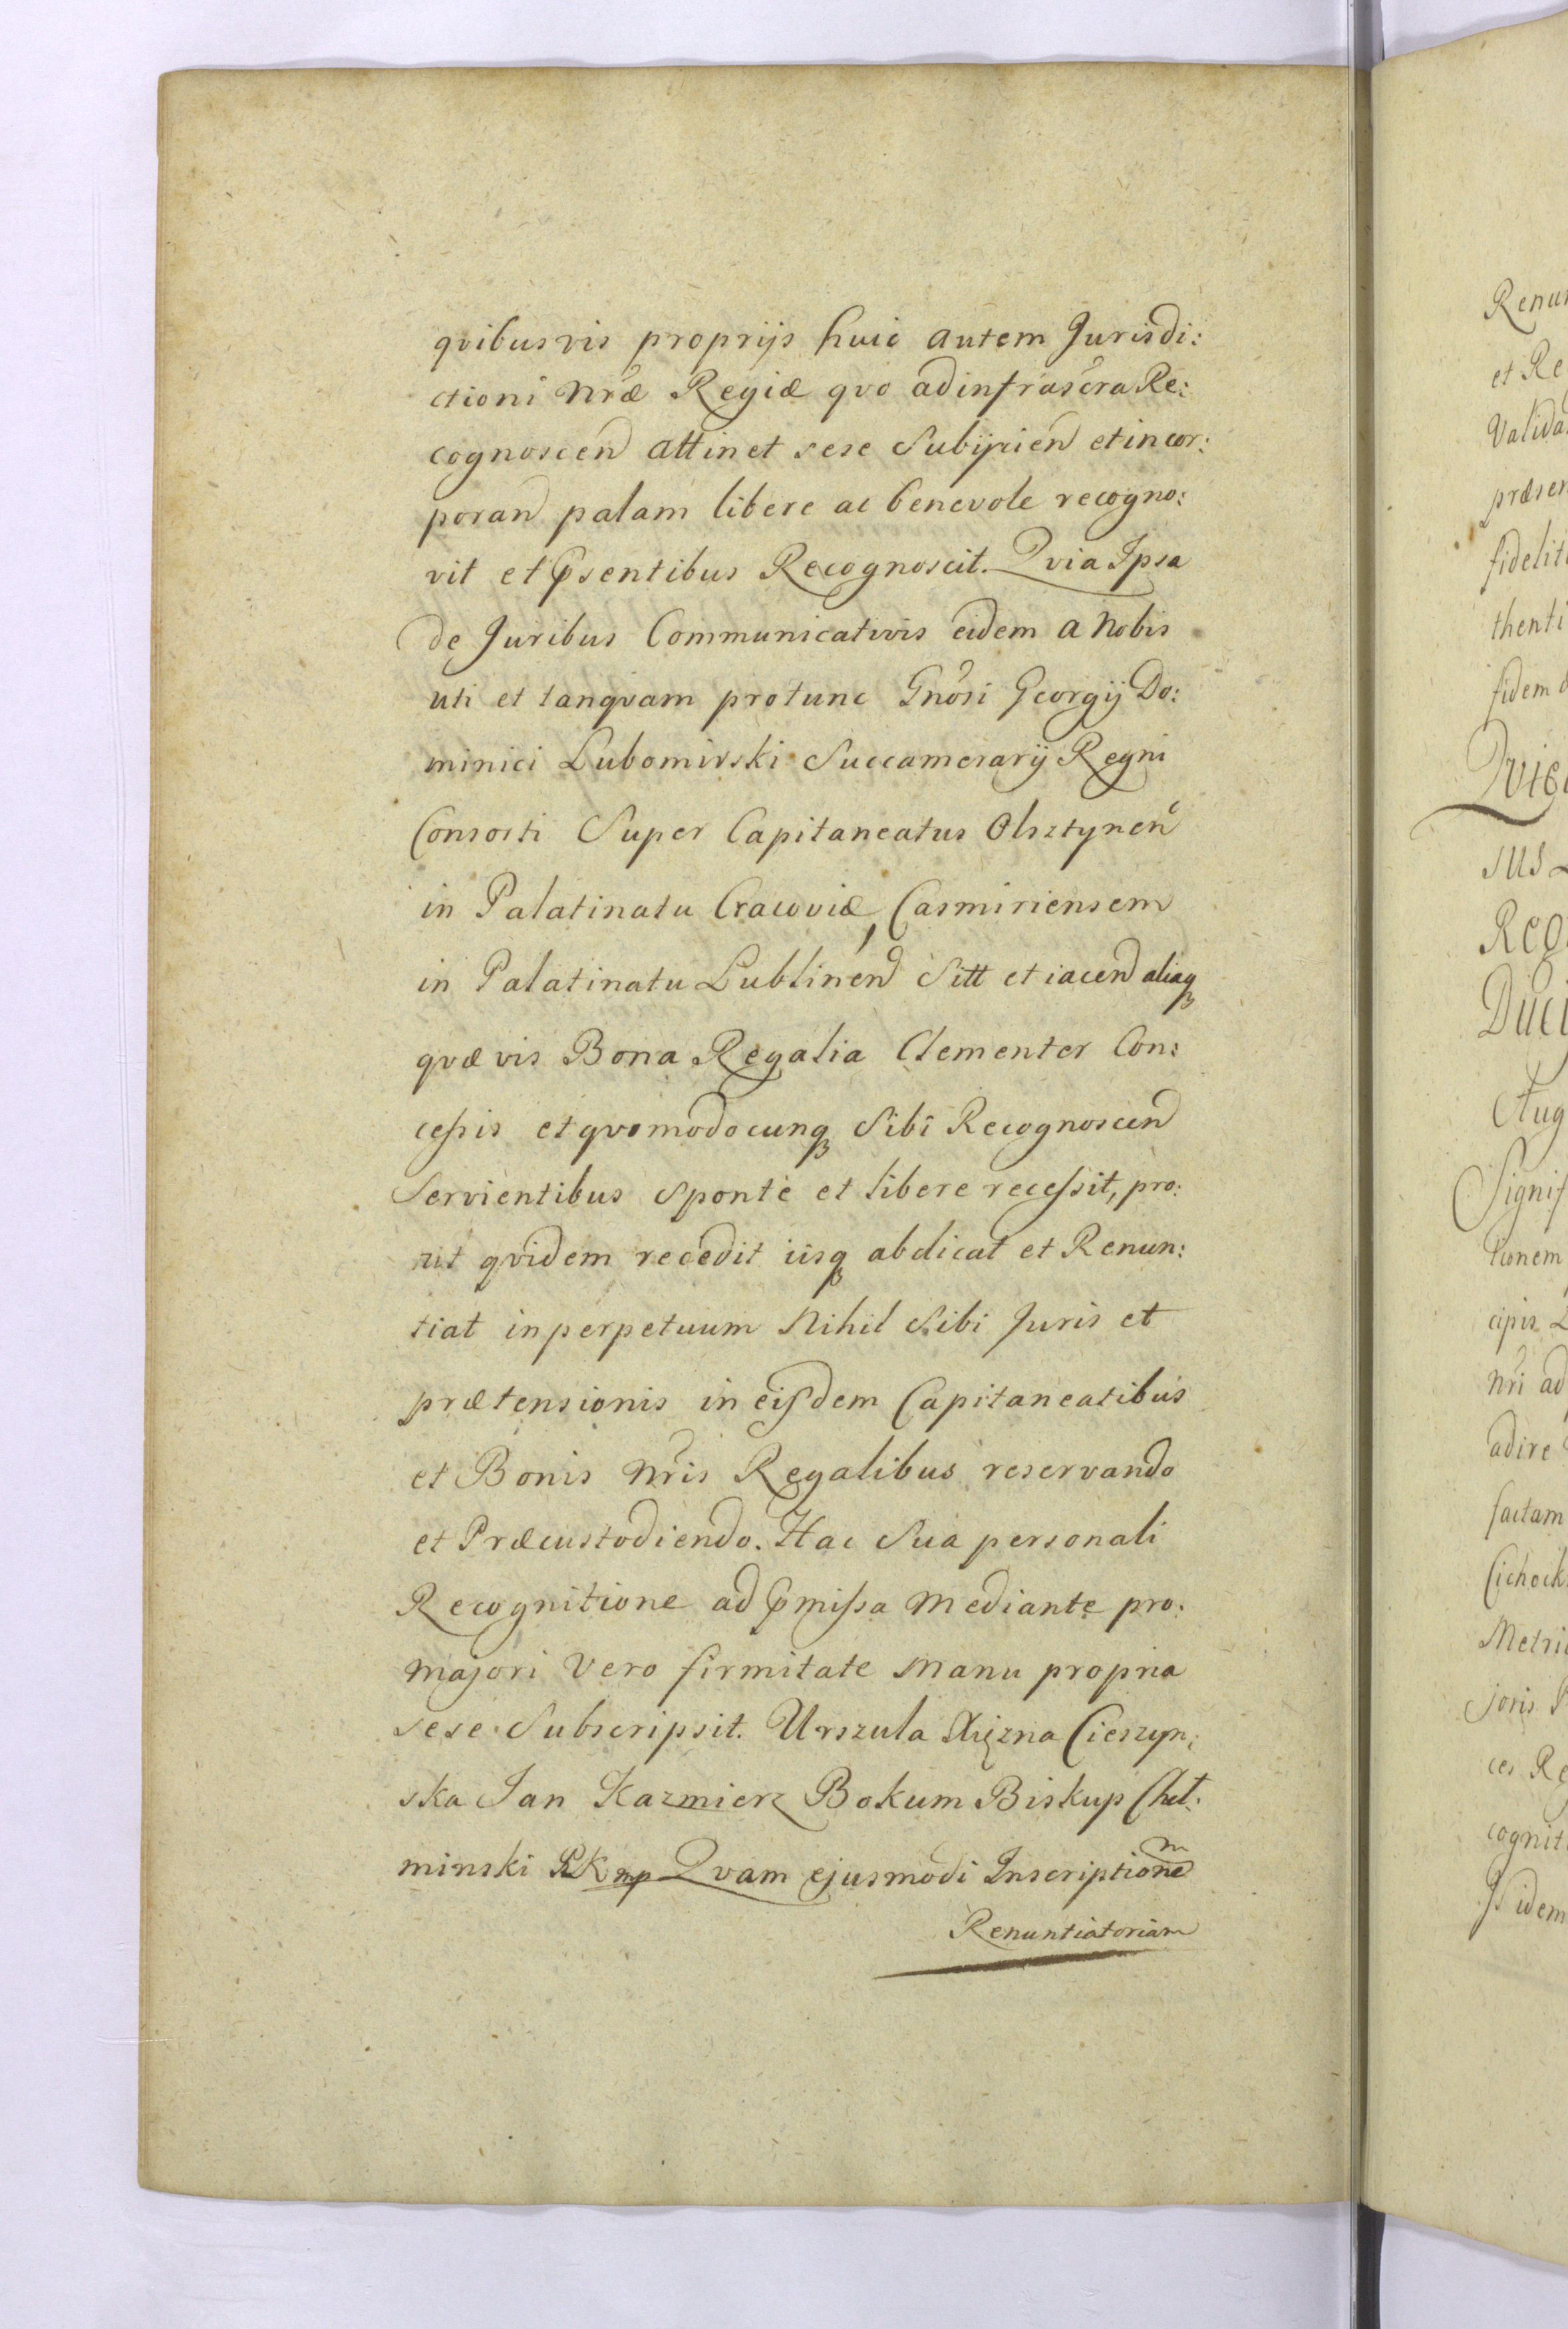 qvibusvis proprijs huic autem Jurisdi:
ctioni Nræ Regiæ qvo ad infrascra Re:
cognoscen attinet sese Subijcien et incor:
poran palam libere ac benevole recogno:
vit et Psentibus Recognoscit. Qvia Ipsa
de Juribus Communicativis eidem a Nobis
uti et tanqvam protunc Gnosi Georgij Do:
minici Lubomirski Succamerarij Regni
Consorti Super Capitaneatus Olsztynen
in Palatinatu Cracoviæ, Casmiriensem
in Palatinatu Lublinen Sitt et iacen aliaq
qvævis Bona Regalia Clementer Con:
cessis et qvomodocunq Sibi Recognoscen
Servientibus Sponte et libere recessit, pro:
ut qvidem recedit iisq abdicat et Renun:
tiat in perpetuum Nihil Sibi Juris et
prætensionis in eisdem Capitaneatibus
et Bonis Nris Regalibus reservando
et Præcustodiendo. Hac Sua personali
Recognitione ad Pmissa Mediante pro
majori Vero firmitate Manu propria
sese Subscripsit. Urszula Xięzna Cieszyn:
ska Jan Kazmierz Bokum Biskup Cheł:
minski PKK mp Qvam ejusmodi Inscriptionem
Renuntiatoriam
Renun
et Re
Valida
præsen
fidelit
thenti
fidem d
sus
Reg
Duci
Aug
Signif
tionem
cipis L
Nri ad
adire
factam
Cichock
Metri
joris
ces Re
cognit
idem